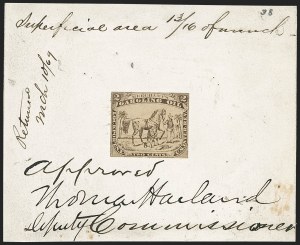 38
Superficial area 13/16 of an inch
Returned
Mch 18/69
MERCHANT'S
GARGLING OIL
TWO CENTS
Approved
Thomas Harland
Deputy Commissioner